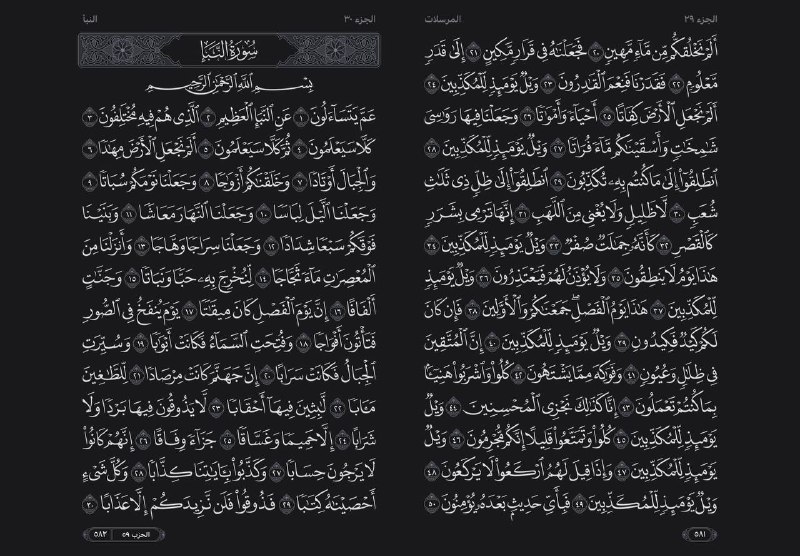 الجزء ٢٩
المرسلات
أَلَمْ نَخْلُقكُّم مِّن مَّآءٍ مَّهِينٍ ٢٠ فَجَعَلْنَٰهُ فِى قَرَارٍ مَّكِينٍ ٢١ إِلَىٰ قَدَرٍ
مَّعْلُومٍ ٢٢ فَقَدَرْنَا فَنِعْمَ ٱلْقَٰدِرُونَ ٢٣ وَيْلٌ يَوْمَئِذٍ لِّلْمُكَذِّبِينَ ٢٤
أَلَمْ نَجْعَلِ ٱلْأَرْضَ كِفَاتًا ٢٥ أَحْيَآءً وَأَمْوَٰتًا ٢٦ وَجَعَلْنَا فِيهَا رَوَٰسِىَ
شَٰمِخَٰتٍ وَأَسْقَيْنَٰكُم مَّآءً فُرَاتًا ٢٧ وَيْلٌ يَوْمَئِذٍ لِّلْمُكَذِّبِينَ ٢٨
ٱنطَلِقُوٓا۟ إِلَىٰ مَا كُنتُم بِهِۦ تُكَذِّبُونَ ٢٩ ٱنطَلِقُوٓا۟ إِلَىٰ ظِلٍّ ذِى ثَلَٰثِ
شُعَبٍ ٣٠ لَّا ظَلِيلٍ وَلَا يُغْنِى مِنَ ٱللَّهَبِ ٣١ إِنَّهَا تَرْمِى بِشَرَرٍ
كَٱلْقَصْرِ ٣٢ كَأَنَّهُۥ جِمَٰلَتٌ صُفْرٌ ٣٣ وَيْلٌ يَوْمَئِذٍ لِّلْمُكَذِّبِينَ ٣٤
هَٰذَا يَوْمُ لَا يَنطِقُونَ ٣٥ وَلَا يُؤْذَنُ لَهُمْ فَيَعْتَذِرُونَ ٣٦ وَيْلٌ يَوْمَئِذٍ
لِّلْمُكَذِّبِينَ ٣٧ هَٰذَا يَوْمُ ٱلْفَصْلِ ۖ جَمَعْنَٰكُمْ وَٱلْأَوَّلِينَ ٣٨ فَإِن كَانَ
لَكُمْ كَيْدٌ فَكِيدُونِ ٣٩ وَيْلٌ يَوْمَئِذٍ لِّلْمُكَذِّبِينَ ٤٠ إِنَّ ٱلْمُتَّقِينَ
فِى ظِلَٰلٍ وَعُيُونٍ ٤١ وَفَوَٰكِهَ مِمَّا يَشْتَهُونَ ٤٢ كُلُوا۟ وَٱشْرَبُوا۟ هَنِيٓـًٔۢا
بِمَا كُنتُمْ تَعْمَلُونَ ٤٣ إِنَّا كَذَٰلِكَ نَجْزِى ٱلْمُحْسِنِينَ ٤٤ وَيْلٌ
يَوْمَئِذٍ لِّلْمُكَذِّبِينَ ٤٥ كُلُوا۟ وَتَمَتَّعُوا۟ قَلِيلًا إِنَّكُم مُّجْرِمُونَ ٤٦ وَيْلٌ
يَوْمَئِذٍ لِّلْمُكَذِّبِينَ ٤٧ وَإِذَا قِيلَ لَهُمُ ٱرْكَعُوا۟ لَا يَرْكَعُونَ ٤٨
وَيْلٌ يَوْمَئِذٍ لِّلْمُكَذِّبِينَ ٤٩ فَبِأَىِّ حَدِيثٍۭ بَعْدَهُۥ يُؤْمِنُونَ ٥٠
٥٨١
الجزء ٣٠
النبأ
سُورَةُ النَّبَإِ
بِسْمِ ٱللَّهِ ٱلرَّحْمَٰنِ ٱلرَّحِيمِ
عَمَّ يَتَسَآءَلُونَ ١ عَنِ ٱلنَّبَإِ ٱلْعَظِيمِ ٢ ٱلَّذِى هُمْ فِيهِ مُخْتَلِفُونَ ٣
كَلَّا سَيَعْلَمُونَ ٤ ثُمَّ كَلَّا سَيَعْلَمُونَ ٥ أَلَمْ نَجْعَلِ ٱلْأَرْضَ مِهَٰدًا ٦
وَٱلْجِبَالَ أَوْتَادًا ٧ وَخَلَقْنَٰكُمْ أَزْوَٰجًا ٨ وَجَعَلْنَا نَوْمَكُمْ سُبَاتًا ٩
وَجَعَلْنَا ٱلَّيْلَ لِبَاسًا ١٠ وَجَعَلْنَا ٱلنَّهَارَ مَعَاشًا ١١ وَبَنَيْنَا
فَوْقَكُمْ سَبْعًا شِدَادًا ١٢ وَجَعَلْنَا سِرَاجًا وَهَّاجًا ١٣ وَأَنزَلْنَا مِنَ
ٱلْمُعْصِرَٰتِ مَآءً ثَجَّاجًا ١٤ لِّنُخْرِجَ بِهِۦ حَبًّا وَنَبَاتًا ١٥ وَجَنَّٰتٍ
أَلْفَافًا ١٦ إِنَّ يَوْمَ ٱلْفَصْلِ كَانَ مِيقَٰتًا ١٧ يَوْمَ يُنفَخُ فِى ٱلصُّورِ
فَتَأْتُونَ أَفْوَاجًا ١٨ وَفُتِحَتِ ٱلسَّمَآءُ فَكَانَتْ أَبْوَٰبًا ١٩ وَسُيِّرَتِ
ٱلْجِبَالُ فَكَانَتْ سَرَابًا ٢٠ إِنَّ جَهَنَّمَ كَانَتْ مِرْصَادًا ٢١ لِّلطَّٰغِينَ
مَـَٔابًا ٢٢ لَّٰبِثِينَ فِيهَآ أَحْقَابًا ٢٣ لَّا يَذُوقُونَ فِيهَا بَرْدًا وَلَا
شَرَابًا ٢٤ إِلَّا حَمِيمًا وَغَسَّاقًا ٢٥ جَزَآءً وِفَاقًا ٢٦ إِنَّهُمْ كَانُوا۟
لَا يَرْجُونَ حِسَابًا ٢٧ وَكَذَّبُوا۟ بِـَٔايَٰتِنَا كِذَّابًا ٢٨ وَكُلَّ شَىْءٍ
أَحْصَيْنَٰهُ كِتَٰبًا ٢٩ فَذُوقُوا۟ فَلَن نَّزِيدَكُمْ إِلَّا عَذَابًا ٣٠
الحزب ٥٩
٥٨٢